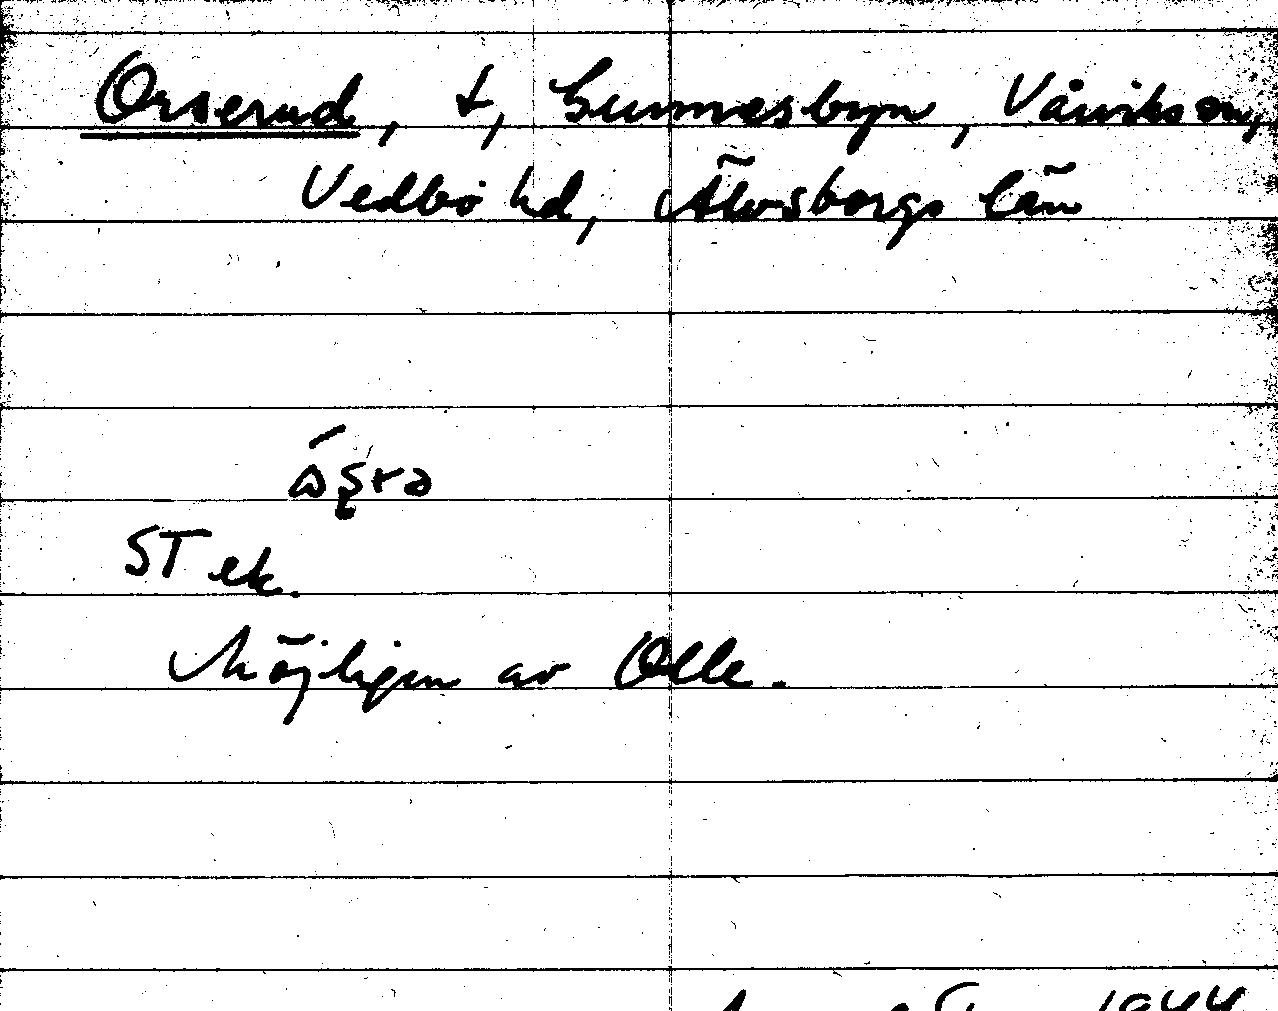 Orserud, t, Gunnesbyn, Vårviks sn,
Vedbo hd, Älvsborgs län
ST ek.
Möjligen av Olle.
1944